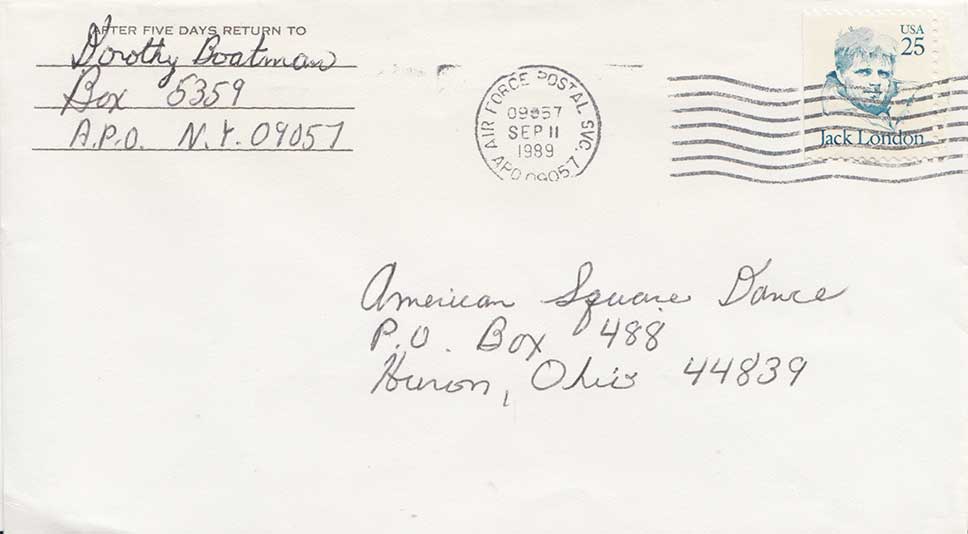 AFTER FIVE DAYS RETURN TO
Dorothy Boatman
Box 5359
A.P.O. N.Y. 09057
AIR FORCE POSTAL SVC.
09057
SEP 11
1989
APO 09057
USA
25
Jack London
American Square Dance
P.O. Box 488
Huron, Ohio 44839